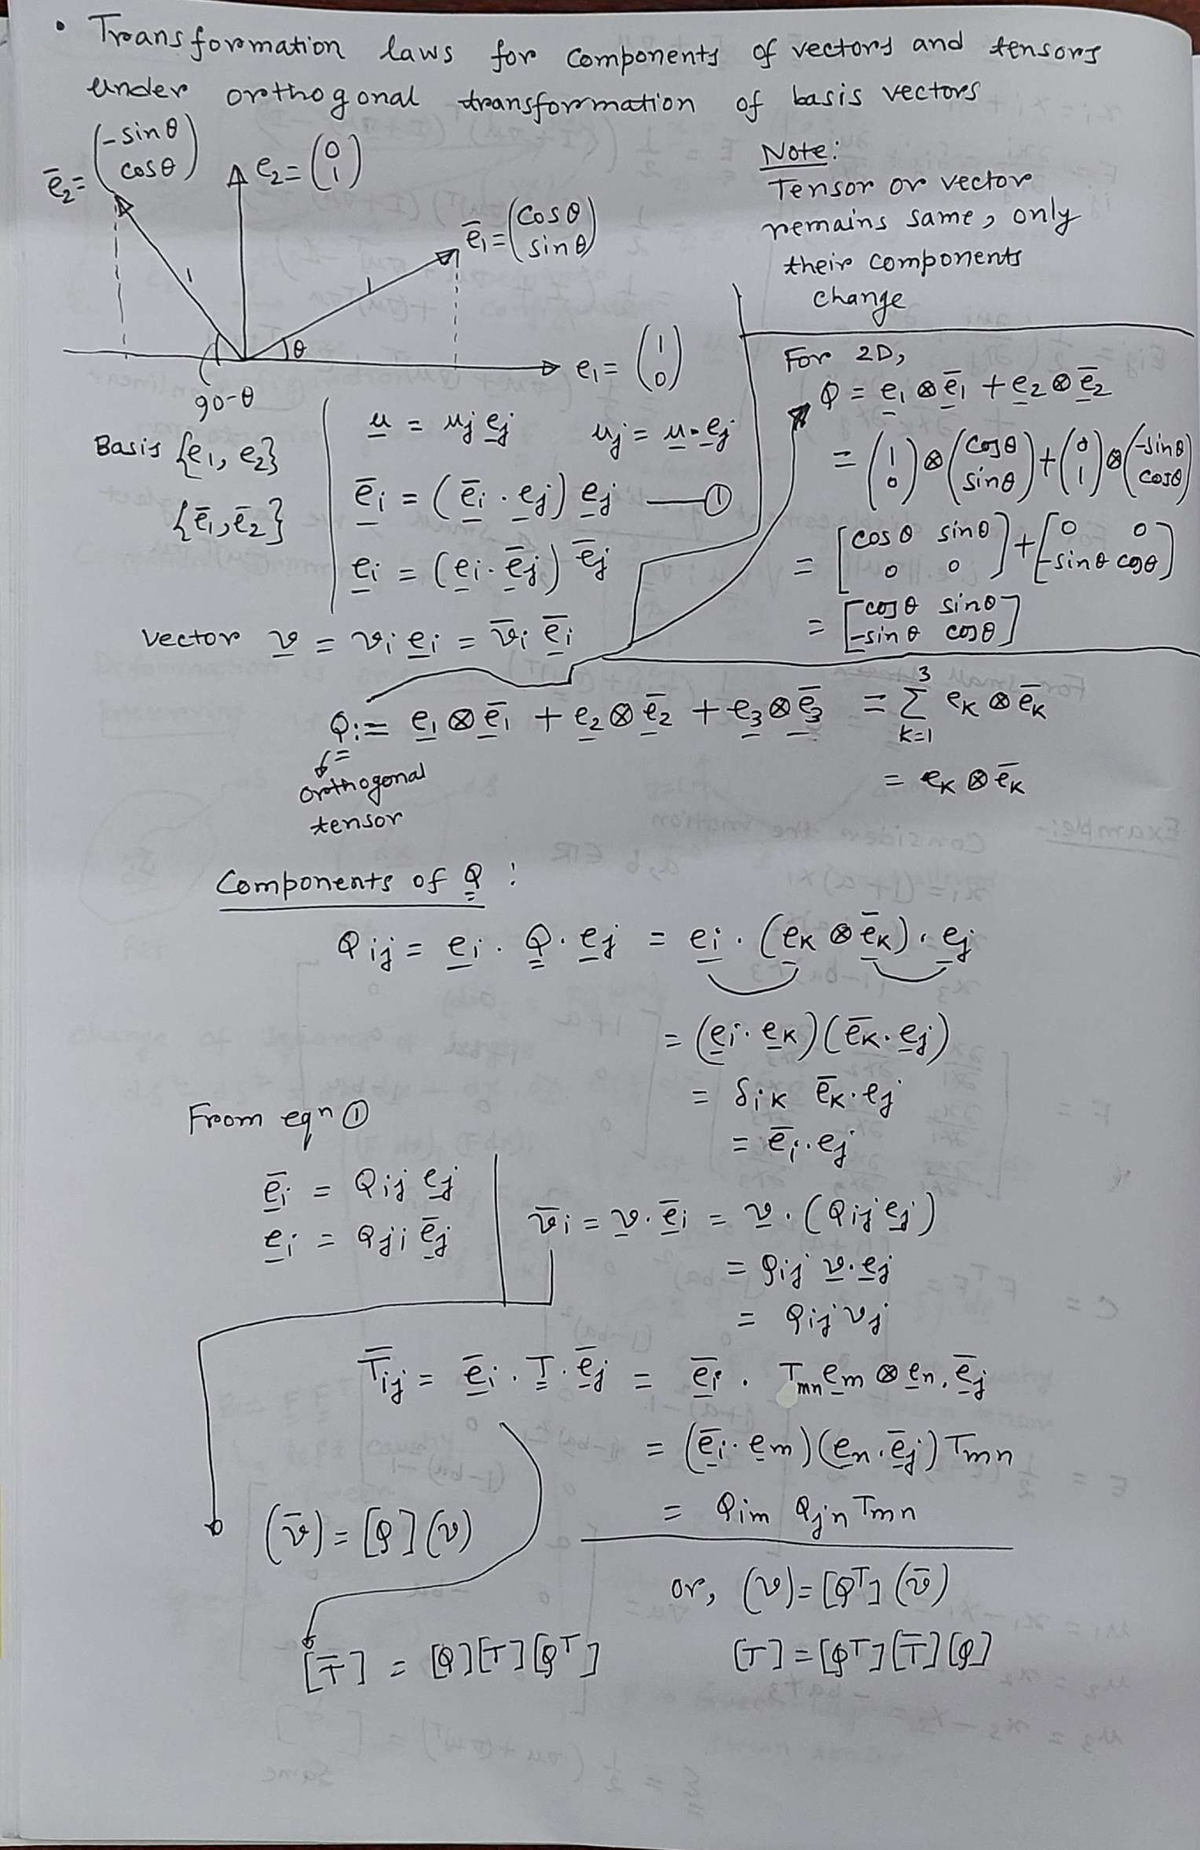 • Transformation laws for components of vectors and tensors
under orthogonal transformation of basis vectors
ē₂ = (-sinθ
cosθ)
e₂ = (0
1)
ē₁ = (cosθ
sinθ)
1
1
θ
90-θ
e₁ = (1
0)
Note:
Tensor or vector
remains same, only
their components
change
Basis {e₁, e₂}
{ē₁, ē₂}
u = uⱼ eⱼ    uⱼ = u · eⱼ
ēᵢ = (ēᵢ · eⱼ) eⱼ —— ①
eᵢ = (eᵢ · ēⱼ) ēⱼ
For 2D,
Q = e₁ ⊗ ē₁ + e₂ ⊗ ē₂
= (1
0) ⊗ (cosθ
sinθ) + (0
1) ⊗ (-sinθ
cosθ)
= [cosθ sinθ
0 0] + [0 0
-sinθ cosθ]
= [cosθ sinθ
-sinθ cosθ]
Vector v = vᵢ eᵢ = v̄ᵢ ēᵢ
Q := e₁ ⊗ ē₁ + e₂ ⊗ ē₂ + e₃ ⊗ ē₃ = Σ_{K=1}^{3} e_K ⊗ ē_K
= e_K ⊗ ē_K
orthogonal
tensor
Components of Q :
Qᵢⱼ = eᵢ · Q · eⱼ = eᵢ · (e_K ⊗ ē_K) · eⱼ
= (eᵢ · e_K)(ē_K · eⱼ)
= δ_{iK} ē_K · eⱼ
= ēᵢ · eⱼ
From eqⁿ ①
ēᵢ = Qᵢⱼ eⱼ
eᵢ = Qⱼᵢ ēⱼ
v̄ᵢ = v · ēᵢ = v · (Qᵢⱼ eⱼ)
= Qᵢⱼ v · eⱼ
= Qᵢⱼ vⱼ
T̄ᵢⱼ = ēᵢ · T · ēⱼ = ēᵢ · Tₘₙ eₘ ⊗ eₙ . ēⱼ
= (ēᵢ · eₘ)(eₙ · ēⱼ) Tₘₙ
= Qᵢₘ Qⱼₙ Tₘₙ
(v̄) = [Q](v)
or, (v) = [Qᵀ](v̄)
[T̄] = [Q][T][Qᵀ]
[T] = [Qᵀ][T̄][Q]